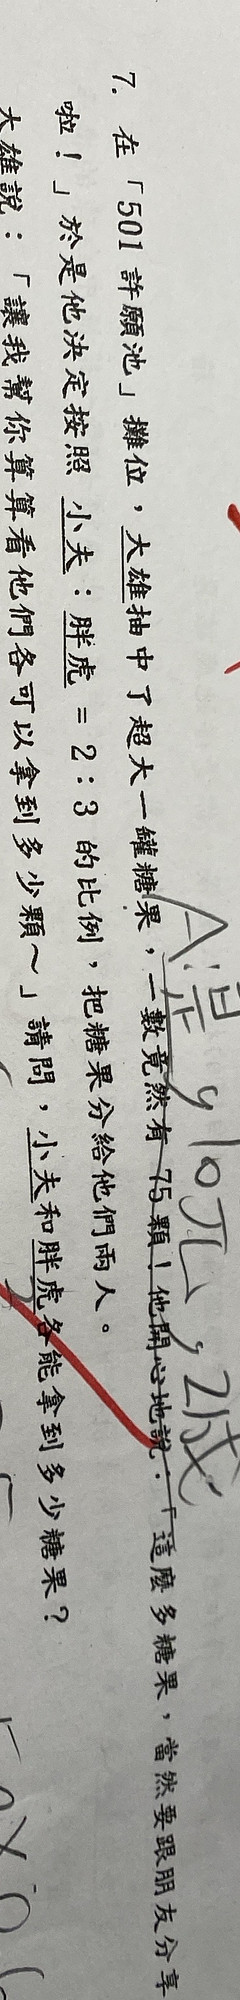 7. 在「501 許願池」攤位，大雄抽中了超大一罐糖果，一數竟然有 75 顆！他開心地說：「這麼多糖果，當然要跟朋友分享
啦！」於是他決定按照 小夫：胖虎 = 2：3 的比例，把糖果分給他們兩人。
大雄說：「讓我幫你算算看他們各可以拿到多少顆～」請問，小夫和胖虎各能拿到多少糖果？
A:是, 10元, 21成